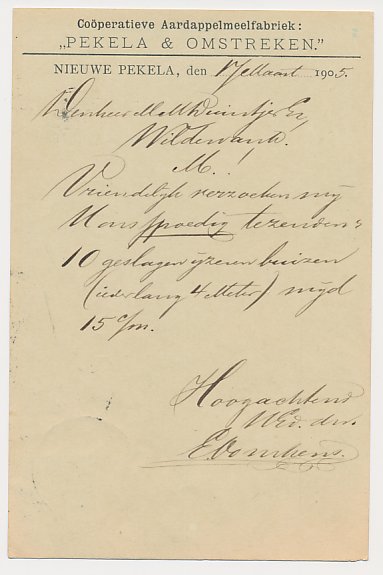 Coöperatieve Aardappelmeelfabriek:
„PEKELA & OMSTREKEN."
NIEUWE PEKELA, den 17 Maart 1905.
Denheer M M Duintjer Ez
Wildervank.
M.!
Vriendelijk verzoeken wij
U ons spoedig te zenden:
10 geslagen ijzeren buizen
(ieder lang 4 Meter) wijd
15 c/m.
Hoogachtend
UEd. dw.